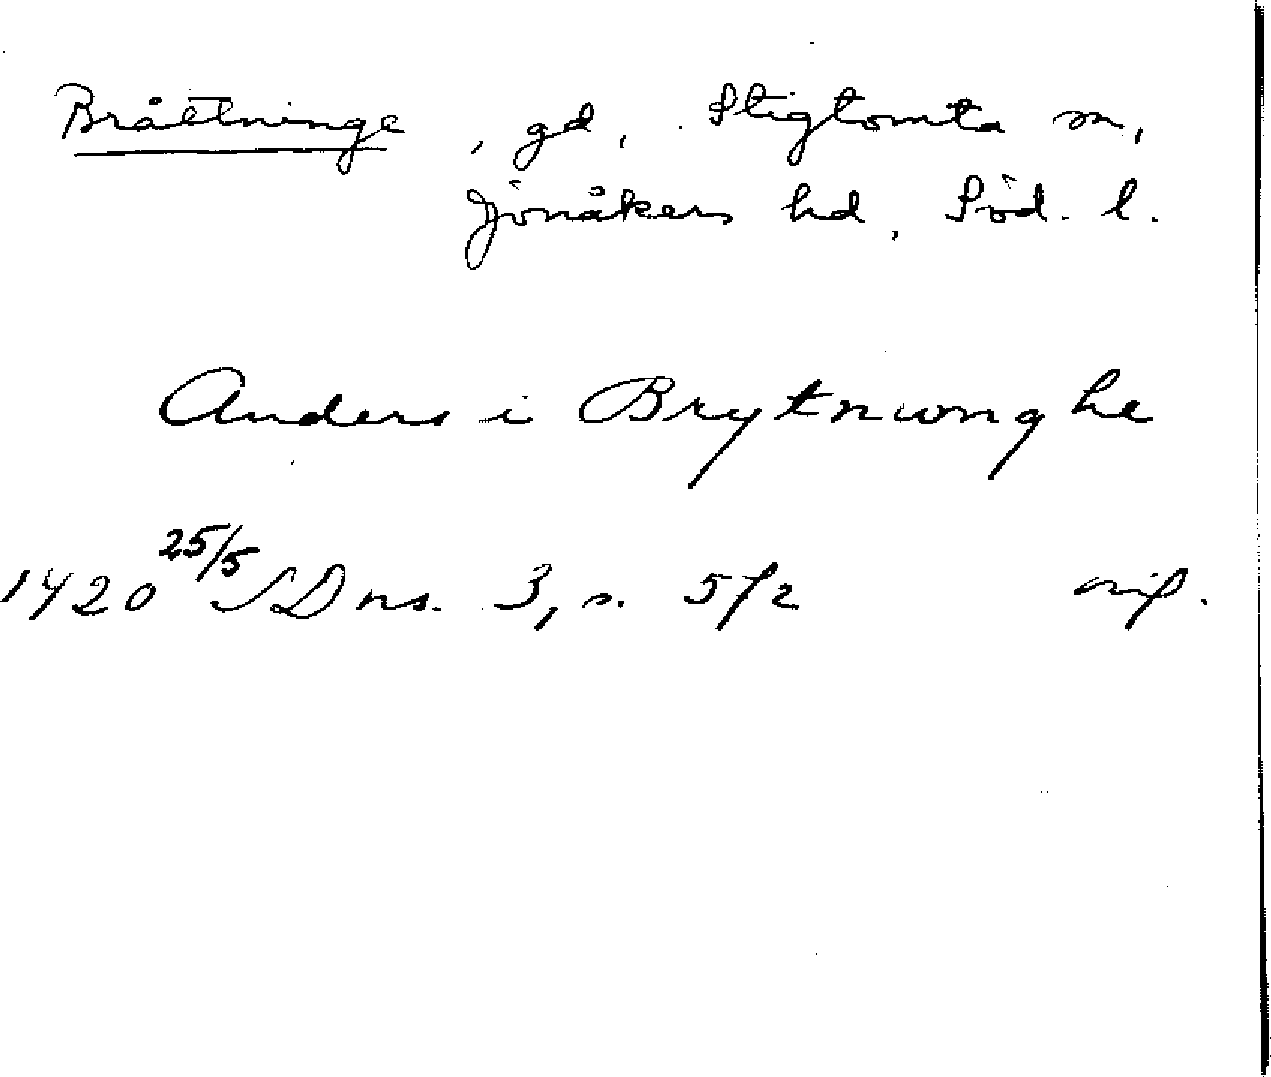 Bråttninge, gd, Stigtomta sn,
Jönåkers hd, Söd. l.
Anders i Brytnwnghe
1420 25/5 SD ns. 3, s. 572 orig.